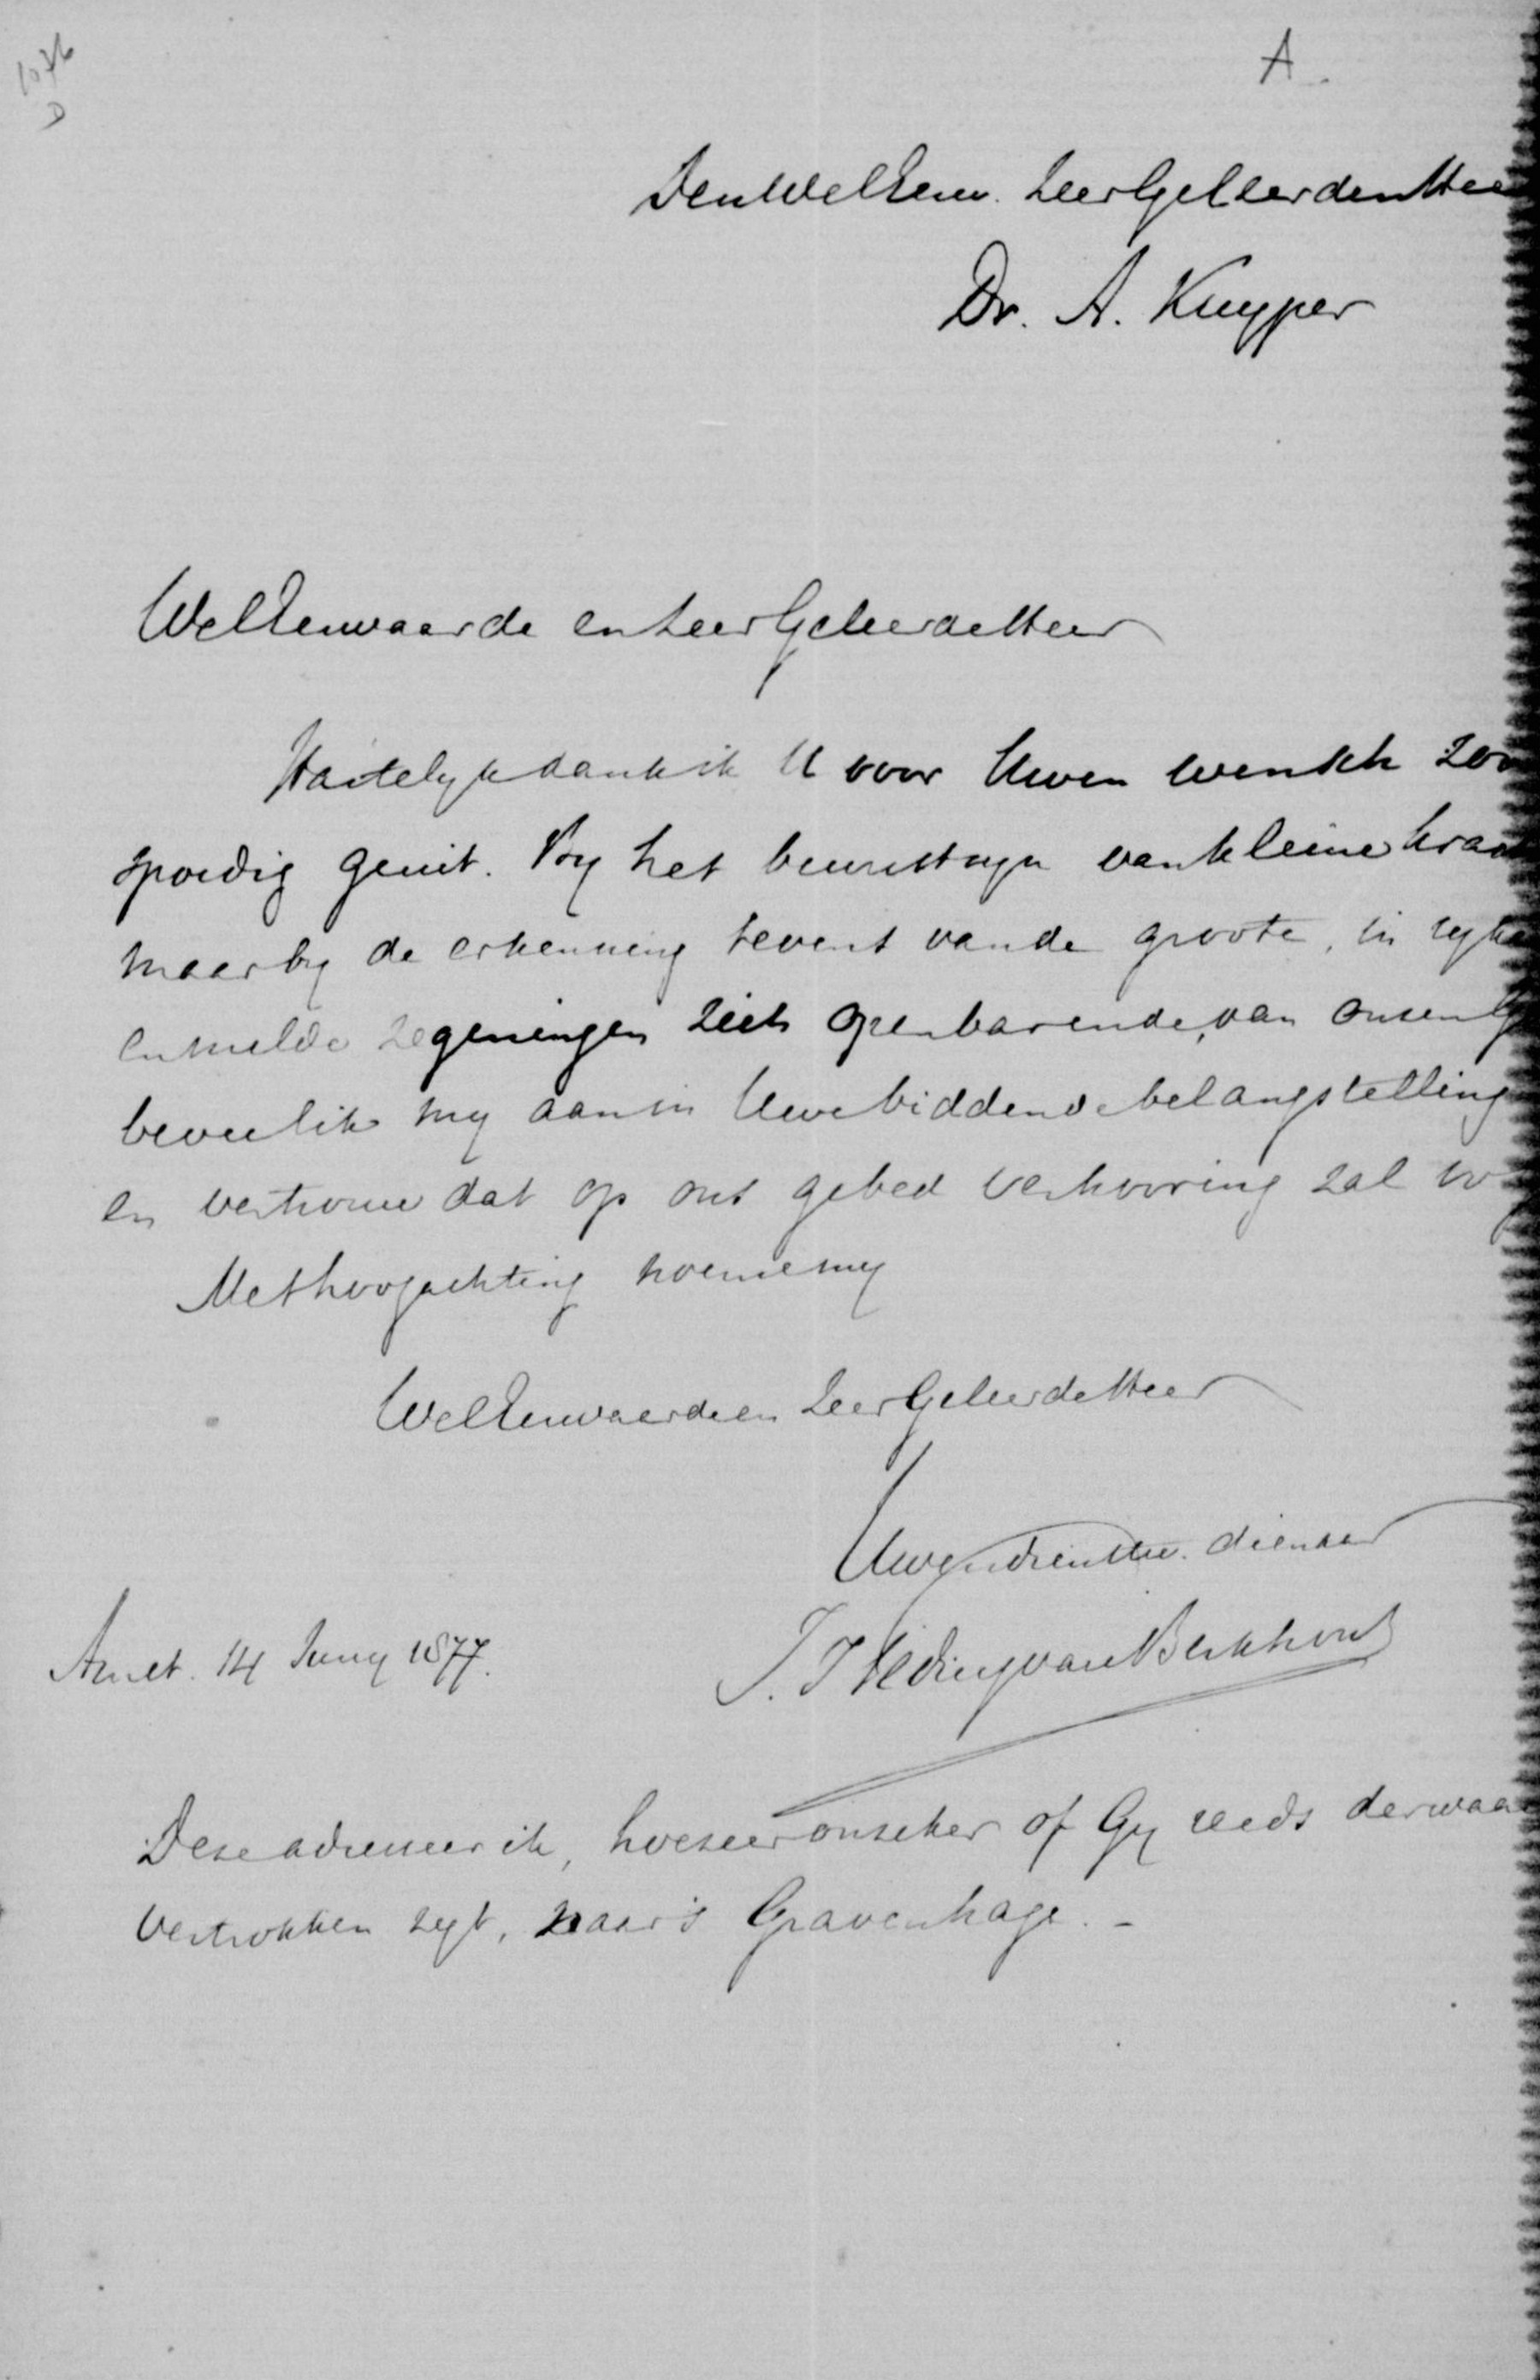 1076
D
A.
Den WelEerw. ZeerGeleerden Hee
Dr. A. Kuyper
WelEerwaarde en ZeerGeleerde Heer
Hartelyk dank ik U voor Uwen wensch zoo
spoedig geuit. By het bewustzyn van kleine kracht
maar by de erkenning tevens van de groote, in ryke
en milde zegeningen zich openbarende, van onzen G
beveel ik my aan in Uwe biddende belangstelling
en vertrouw dat op ons gebed verhooring zal vo
Met hoogachting noem ik my
WelEerwaarde en ZeerGeleerde Heer
Uwen dienstw. dienaar
Amst. 14 Juny 1877.
J. J Teding van Berkhout
Deze adresseer ik, hoezeer onzeker of Gy reeds derwaa
vertrokken zyt, naar 's Gravenhage. -